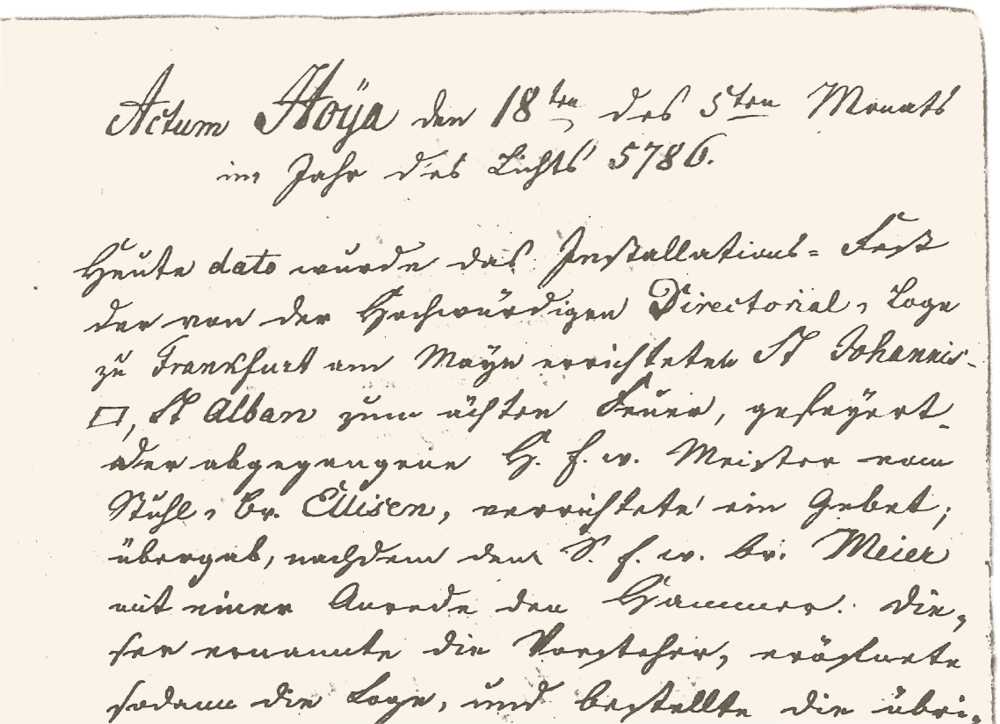 Actum Hoÿa den 18ten des 5ten Monats
im Jahr des Lichts 5786.
Heute dato wurde das Installations= Fest
der von der Hochwürdigen Directorial, Loge
zu Frankfurt am Maÿn errichteten St Johannis-
□, St Alban zum ächten Feuer, gefeÿert.
der abgegangene H. f. w. Meister vom
Stuhl, br. Ellisen, verrichtete ein Gebet;
übergab, nachdem dem S. f. w. br. Meier
mit einer Anrede den Hammer. Die,
ser ernannte die Vorsteher, eröfnete
sodann die Loge, und bestellte die übri,